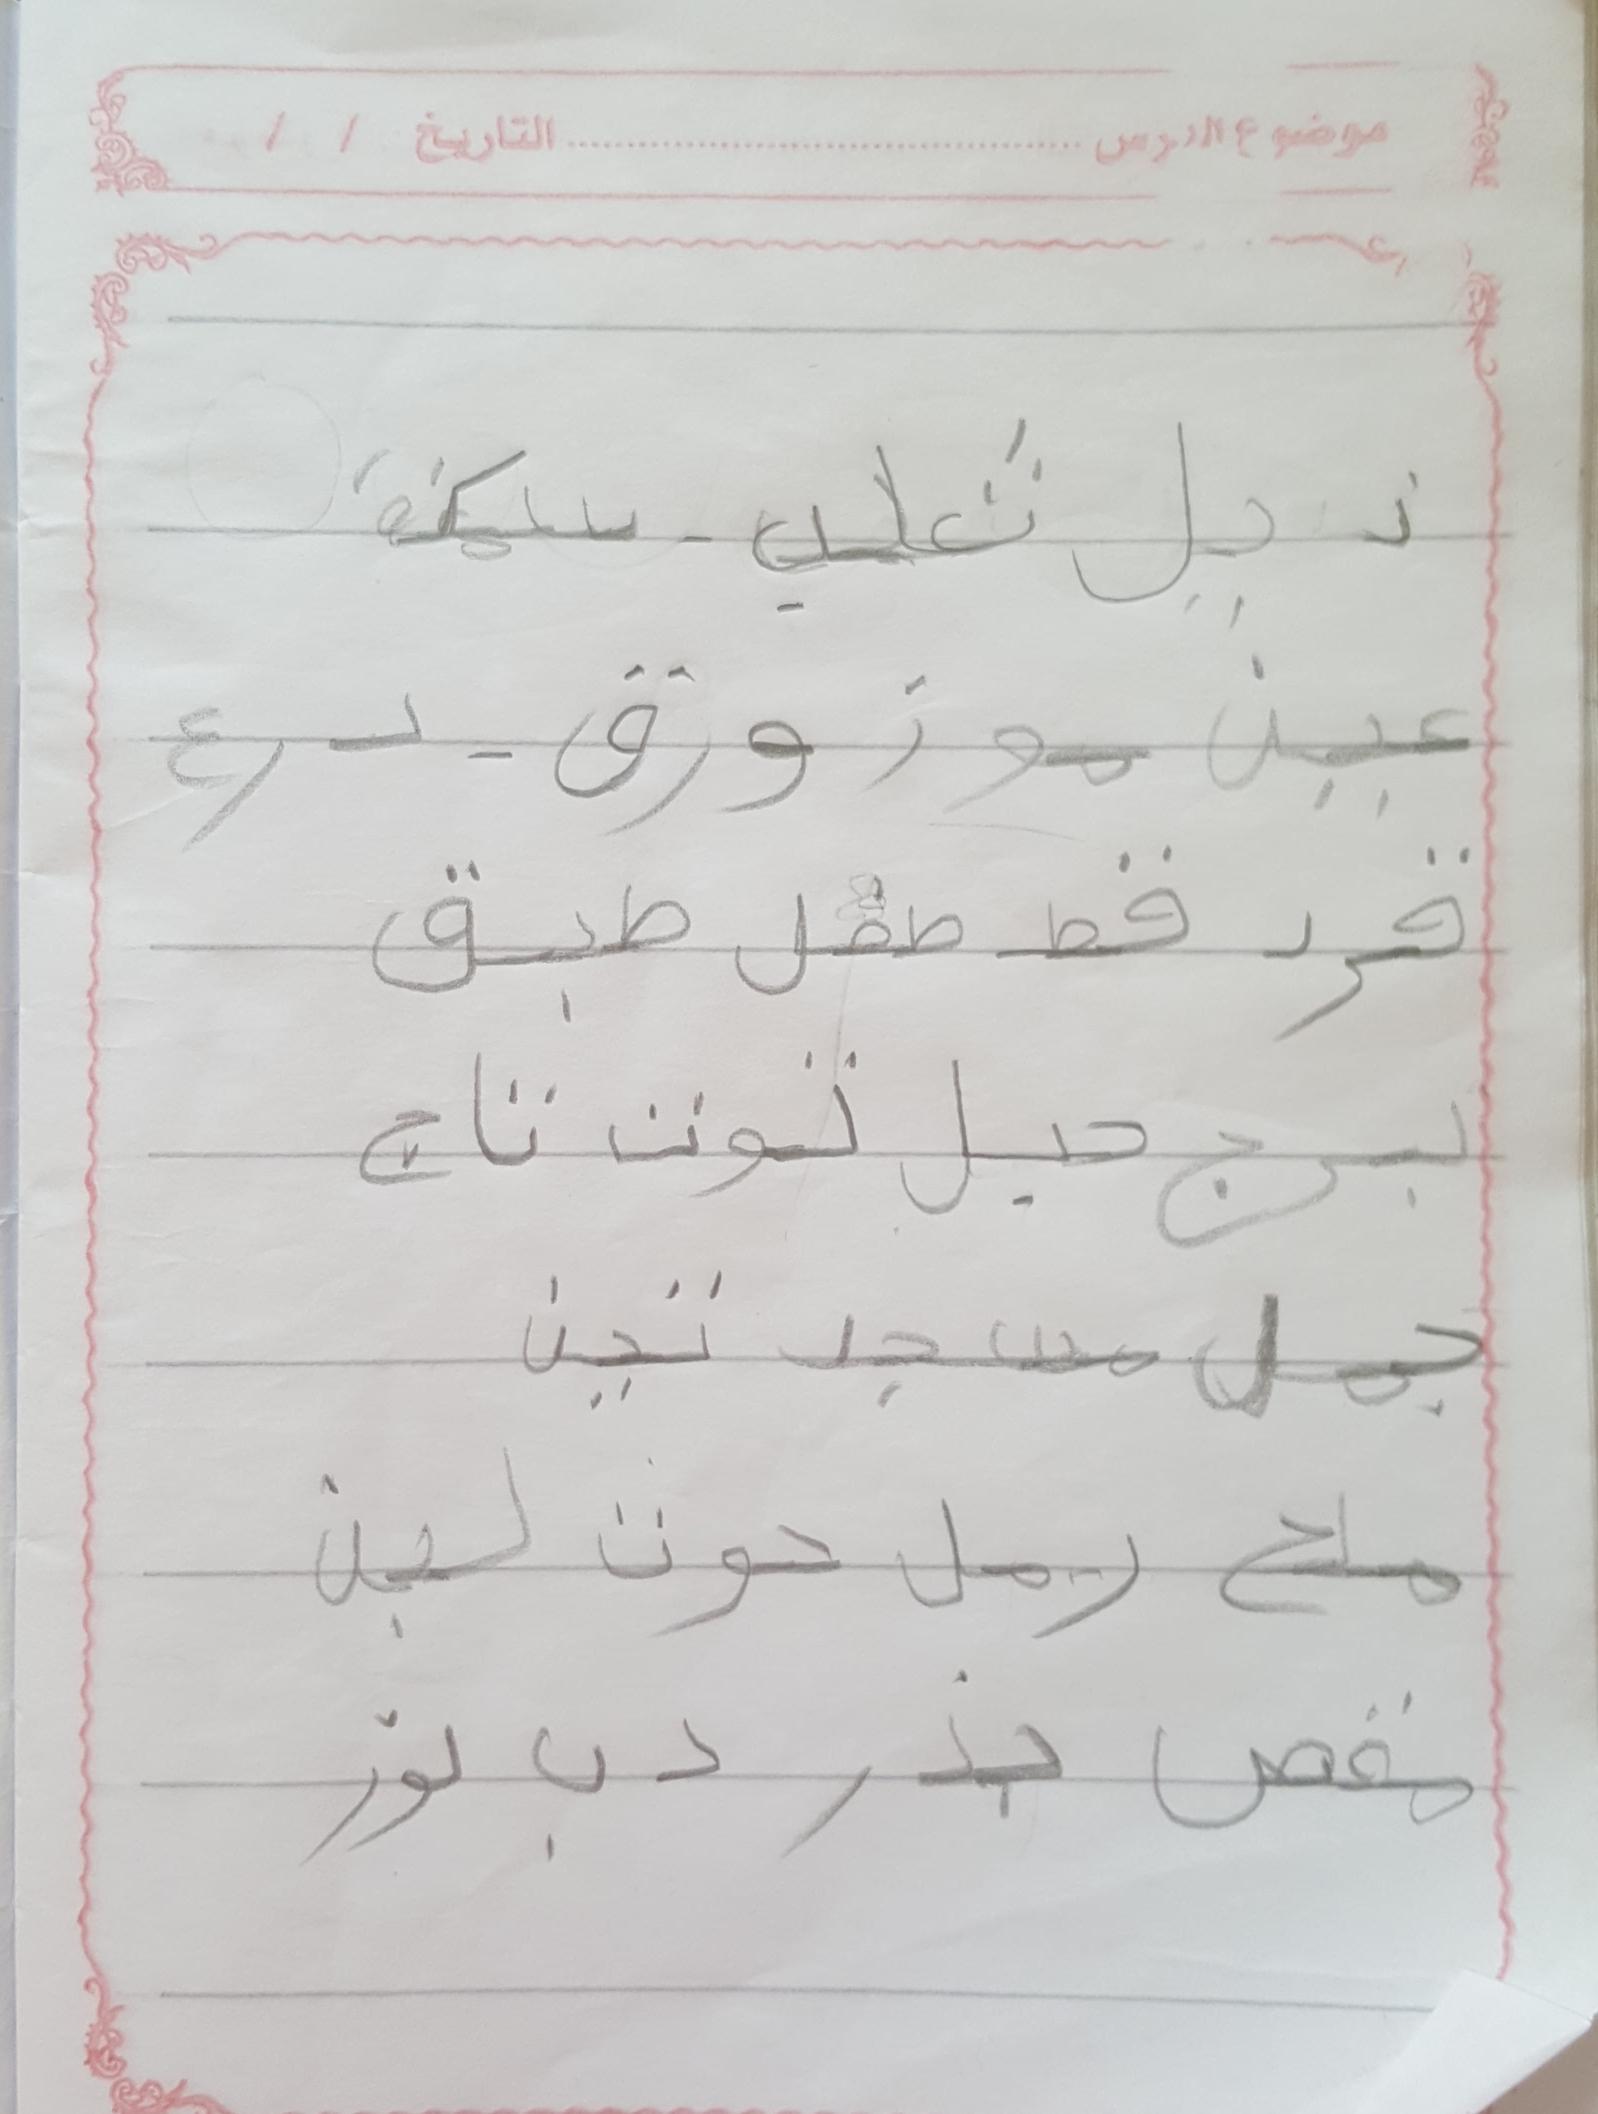 موضوع الدرس ........................ التاريخ / /
ذيل ثعلب - سمكة
عين موز ورق - درع
قرد قط طفل طبق
برج حبل توت تاج
جمل مسجد تنين
ملح رمل حوت لبن
مقص جذر دب لوز